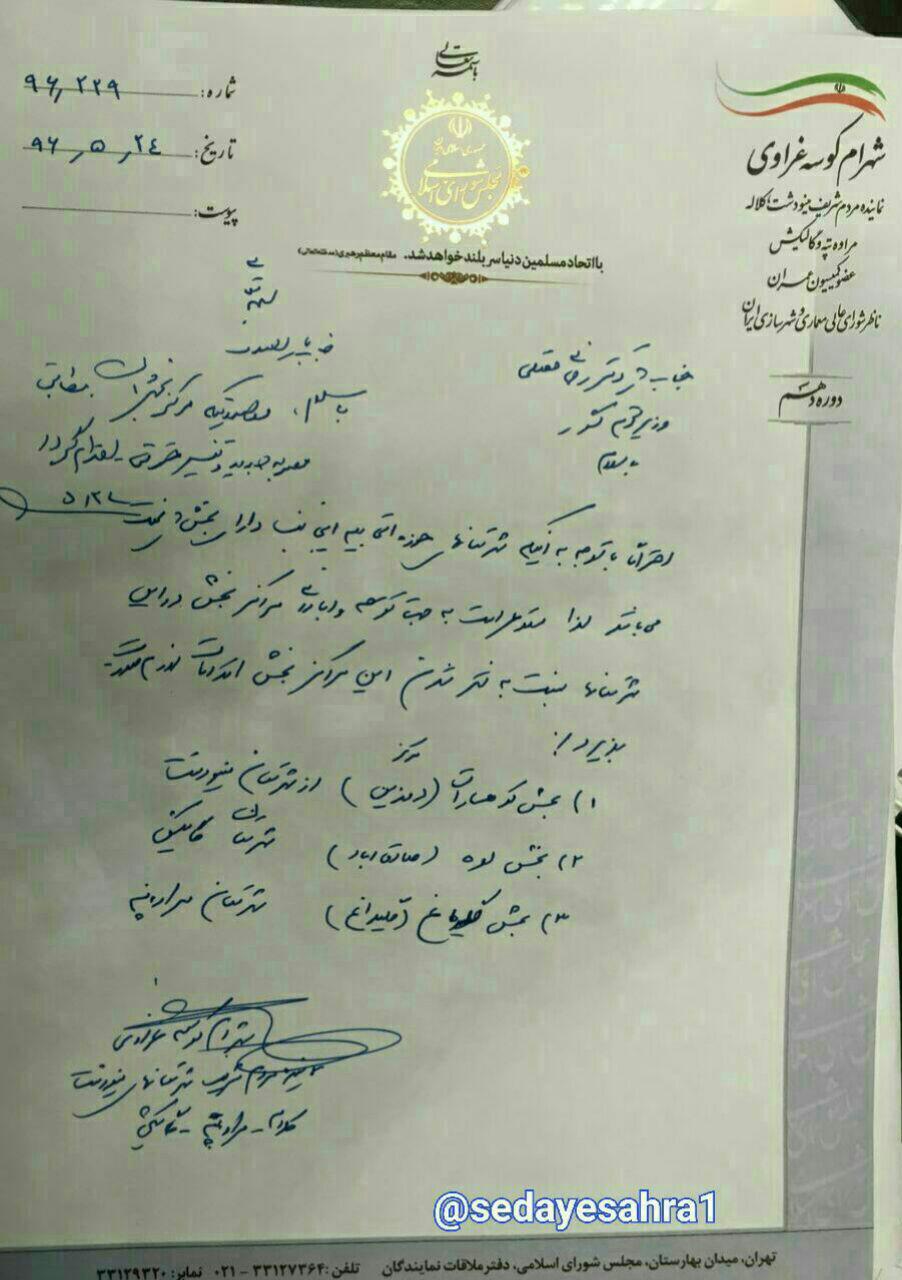 باسمه تعالی
جمهوری اسلامی ایران
مجلس شورای اسلامی
با اتحاد مسلمین دنیا سر بلند خواهد شد. مقام معظم رهبری (مدظله‌العالی)
شماره: ۹۶٫۲۲۹
تاریخ: ۹۶٫۵٫۲۴
پیوست:
شهرام کوسه غراوی
نماینده مردم شریف مینودشت، کلاله
مراوه تپه و گالیکش
عضو کمیسیون عمران
ناظر شورای عالی معماری و شهرسازی ایران
دوره دهم
جناب آقای دکتر رحمانی فضلی
وزیر محترم کشور
با سلام
با سلام، در صورتیکه مرکز بخش
مصوبه جدید و تقسیم اقدام گردد
احتراماً با توجه به اینکه شهرستانهای حوزه انتخابیه اینجانب دارای بخش
می باشد لذا به جهت توسعه و آبادانی مراکز بخش در این
شهرستانها نسبت به شهر شدن این مراکز بخش اقدامات لازم صورت
پذیرد:
۱) بخش کوهسارات (مرکز دوزین) از شهرستان مینودشت
۲) بخش لوه (صادق آباد) شهرستان گالیکش
۳) بخش گلیداغ (گلیداغ) شهرستان مراوه تپه
شهرام کوسه غراوی
نماینده مردم شریف شهرستانهای مینودشت
کلاله - مراوه تپه - گالیکش
@sedayesahra1
تهران، میدان بهارستان، مجلس شورای اسلامی، دفتر ملاقات نمایندگان تلفن: ۳۳۱۲۷۳۶۴ - ۰۲۱ نمابر: ۳۳۱۲۹۳۲۰